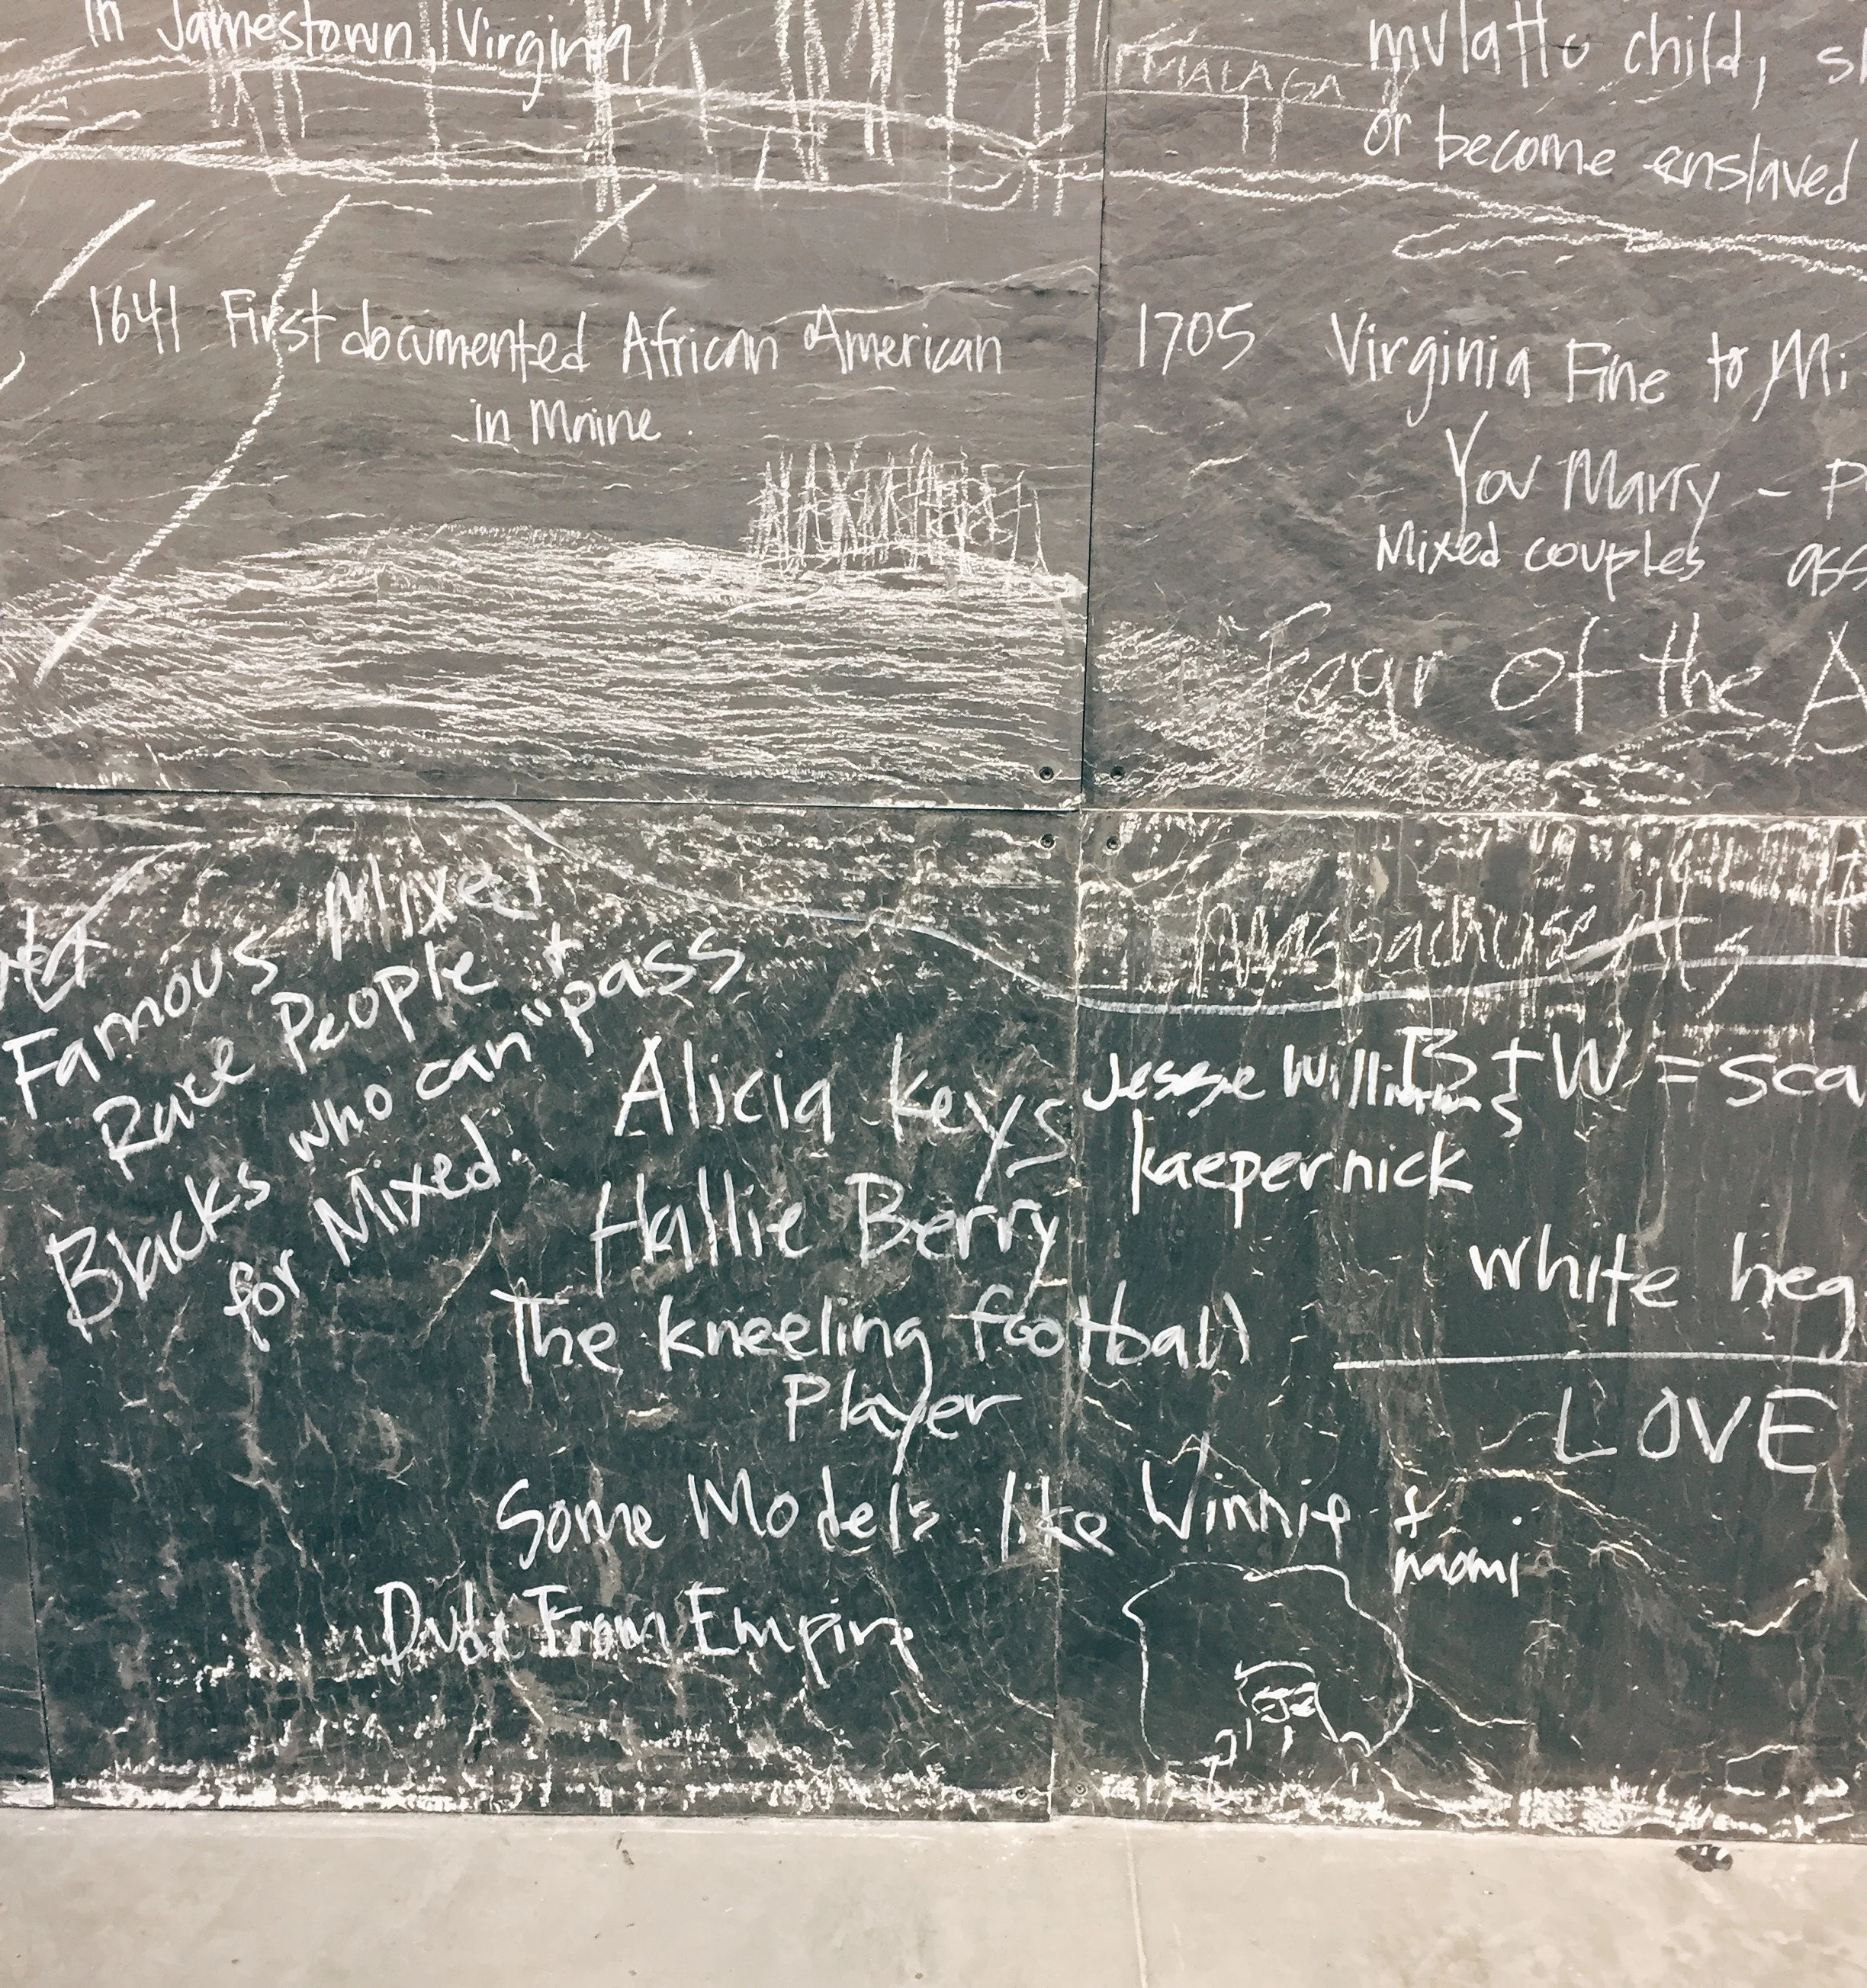 in Jamestown, Virginia
MALAGA
mulatto child,
or become enslaved
1641 First documented African American
in Maine.
1705 Virginia Fine to
You Marry -
Mixed couples
of the
Massachusetts
Famous Mixed
Race People +
Blacks who can "pass
for Mixed.
Alicia keys
Hallie Berry
The kneeling football
Player
Some Models like Winnie +
naomi
Dude From Empire
Jesse Williams
kaepernick
B + W =
white
LOVE